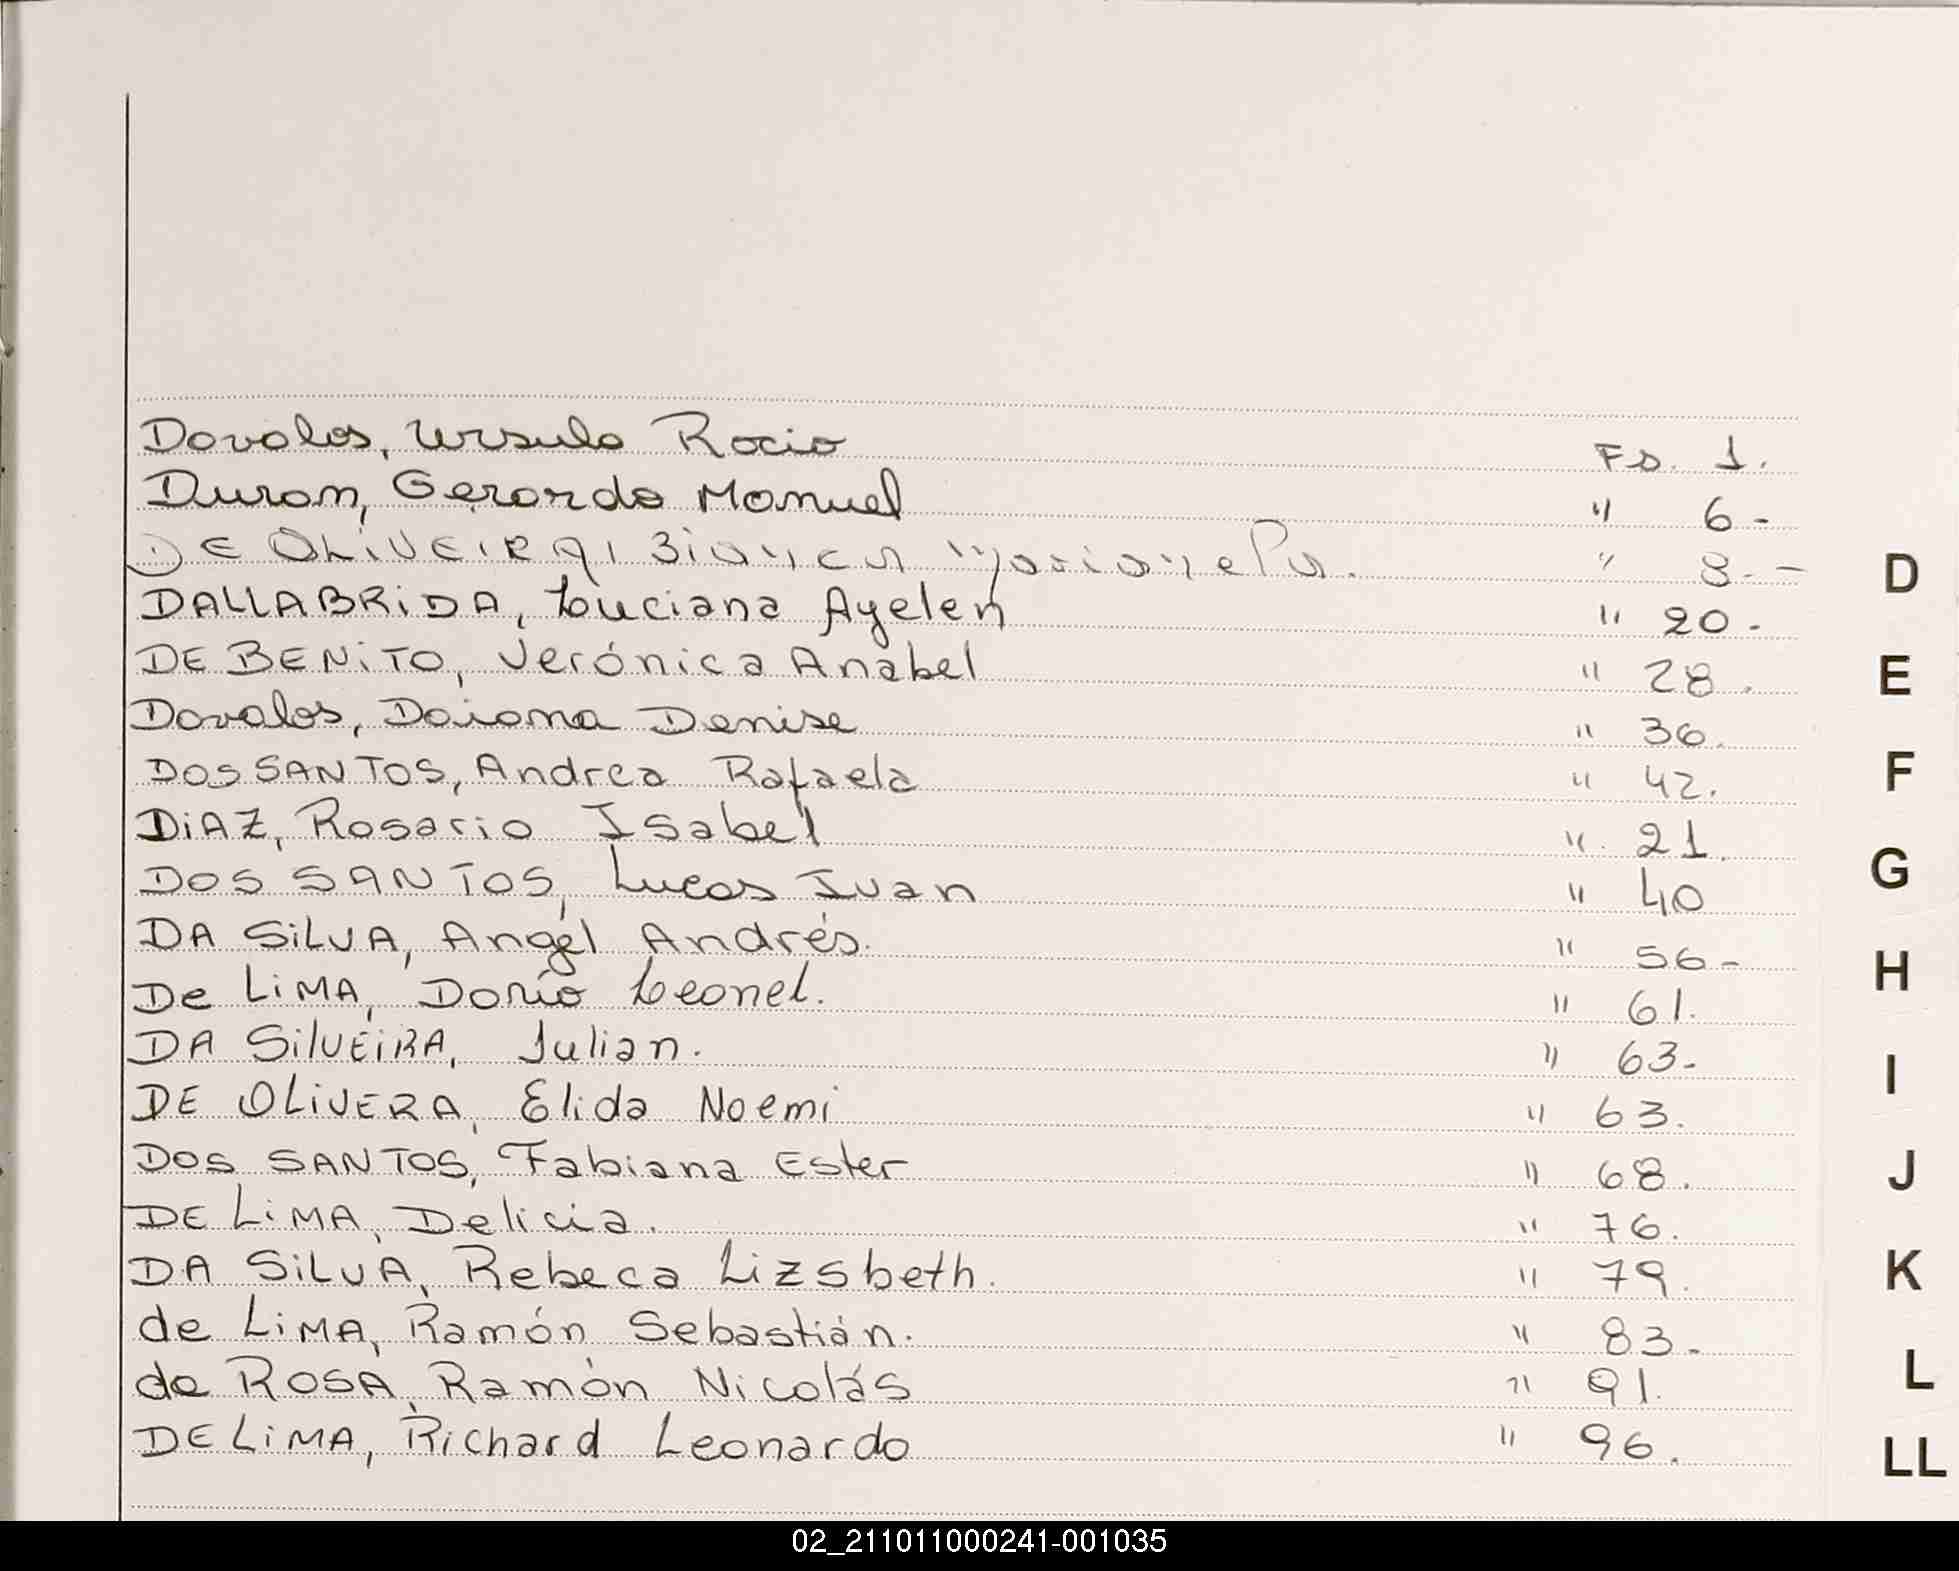 Davalos, Ursula Rocio Fs. 1.
Duran, Gerardo Manuel " 6-
DE OLiVEiRA, Bianca Marianela. " 8.-
DALLABRiDA, Luciana Ayelen " 20.
DE BENiTO, Verónica Anabel " 28.
Davalos, Daiana Denise " 36.
DOS SANTOS, Andrea Rafaela " 42.
DiAZ, Rosario Isabel " 21.
DOS SANTOS, Lucas Ivan " 40
DA SiLVA, Angel Andrés. " 56-
De LiMA, Darío Leonel. " 61.
DA SilVEiRA, Julian. " 63-
DE OLiVERA, Elida Noemi " 63.
DOS SANTOS, Fabiana Ester " 68.
DE LiMA, Delicia. " 76.
DA SiLVA, Rebeca Lizsbeth. " 79.
de LiMA, Ramón Sebastián. " 83.
da ROSA, Ramón Nicolás " 91.
DE LiMA, Richard Leonardo " 96.
D
E
F
G
H
I
J
K
L
LL
02_211011000241-001035